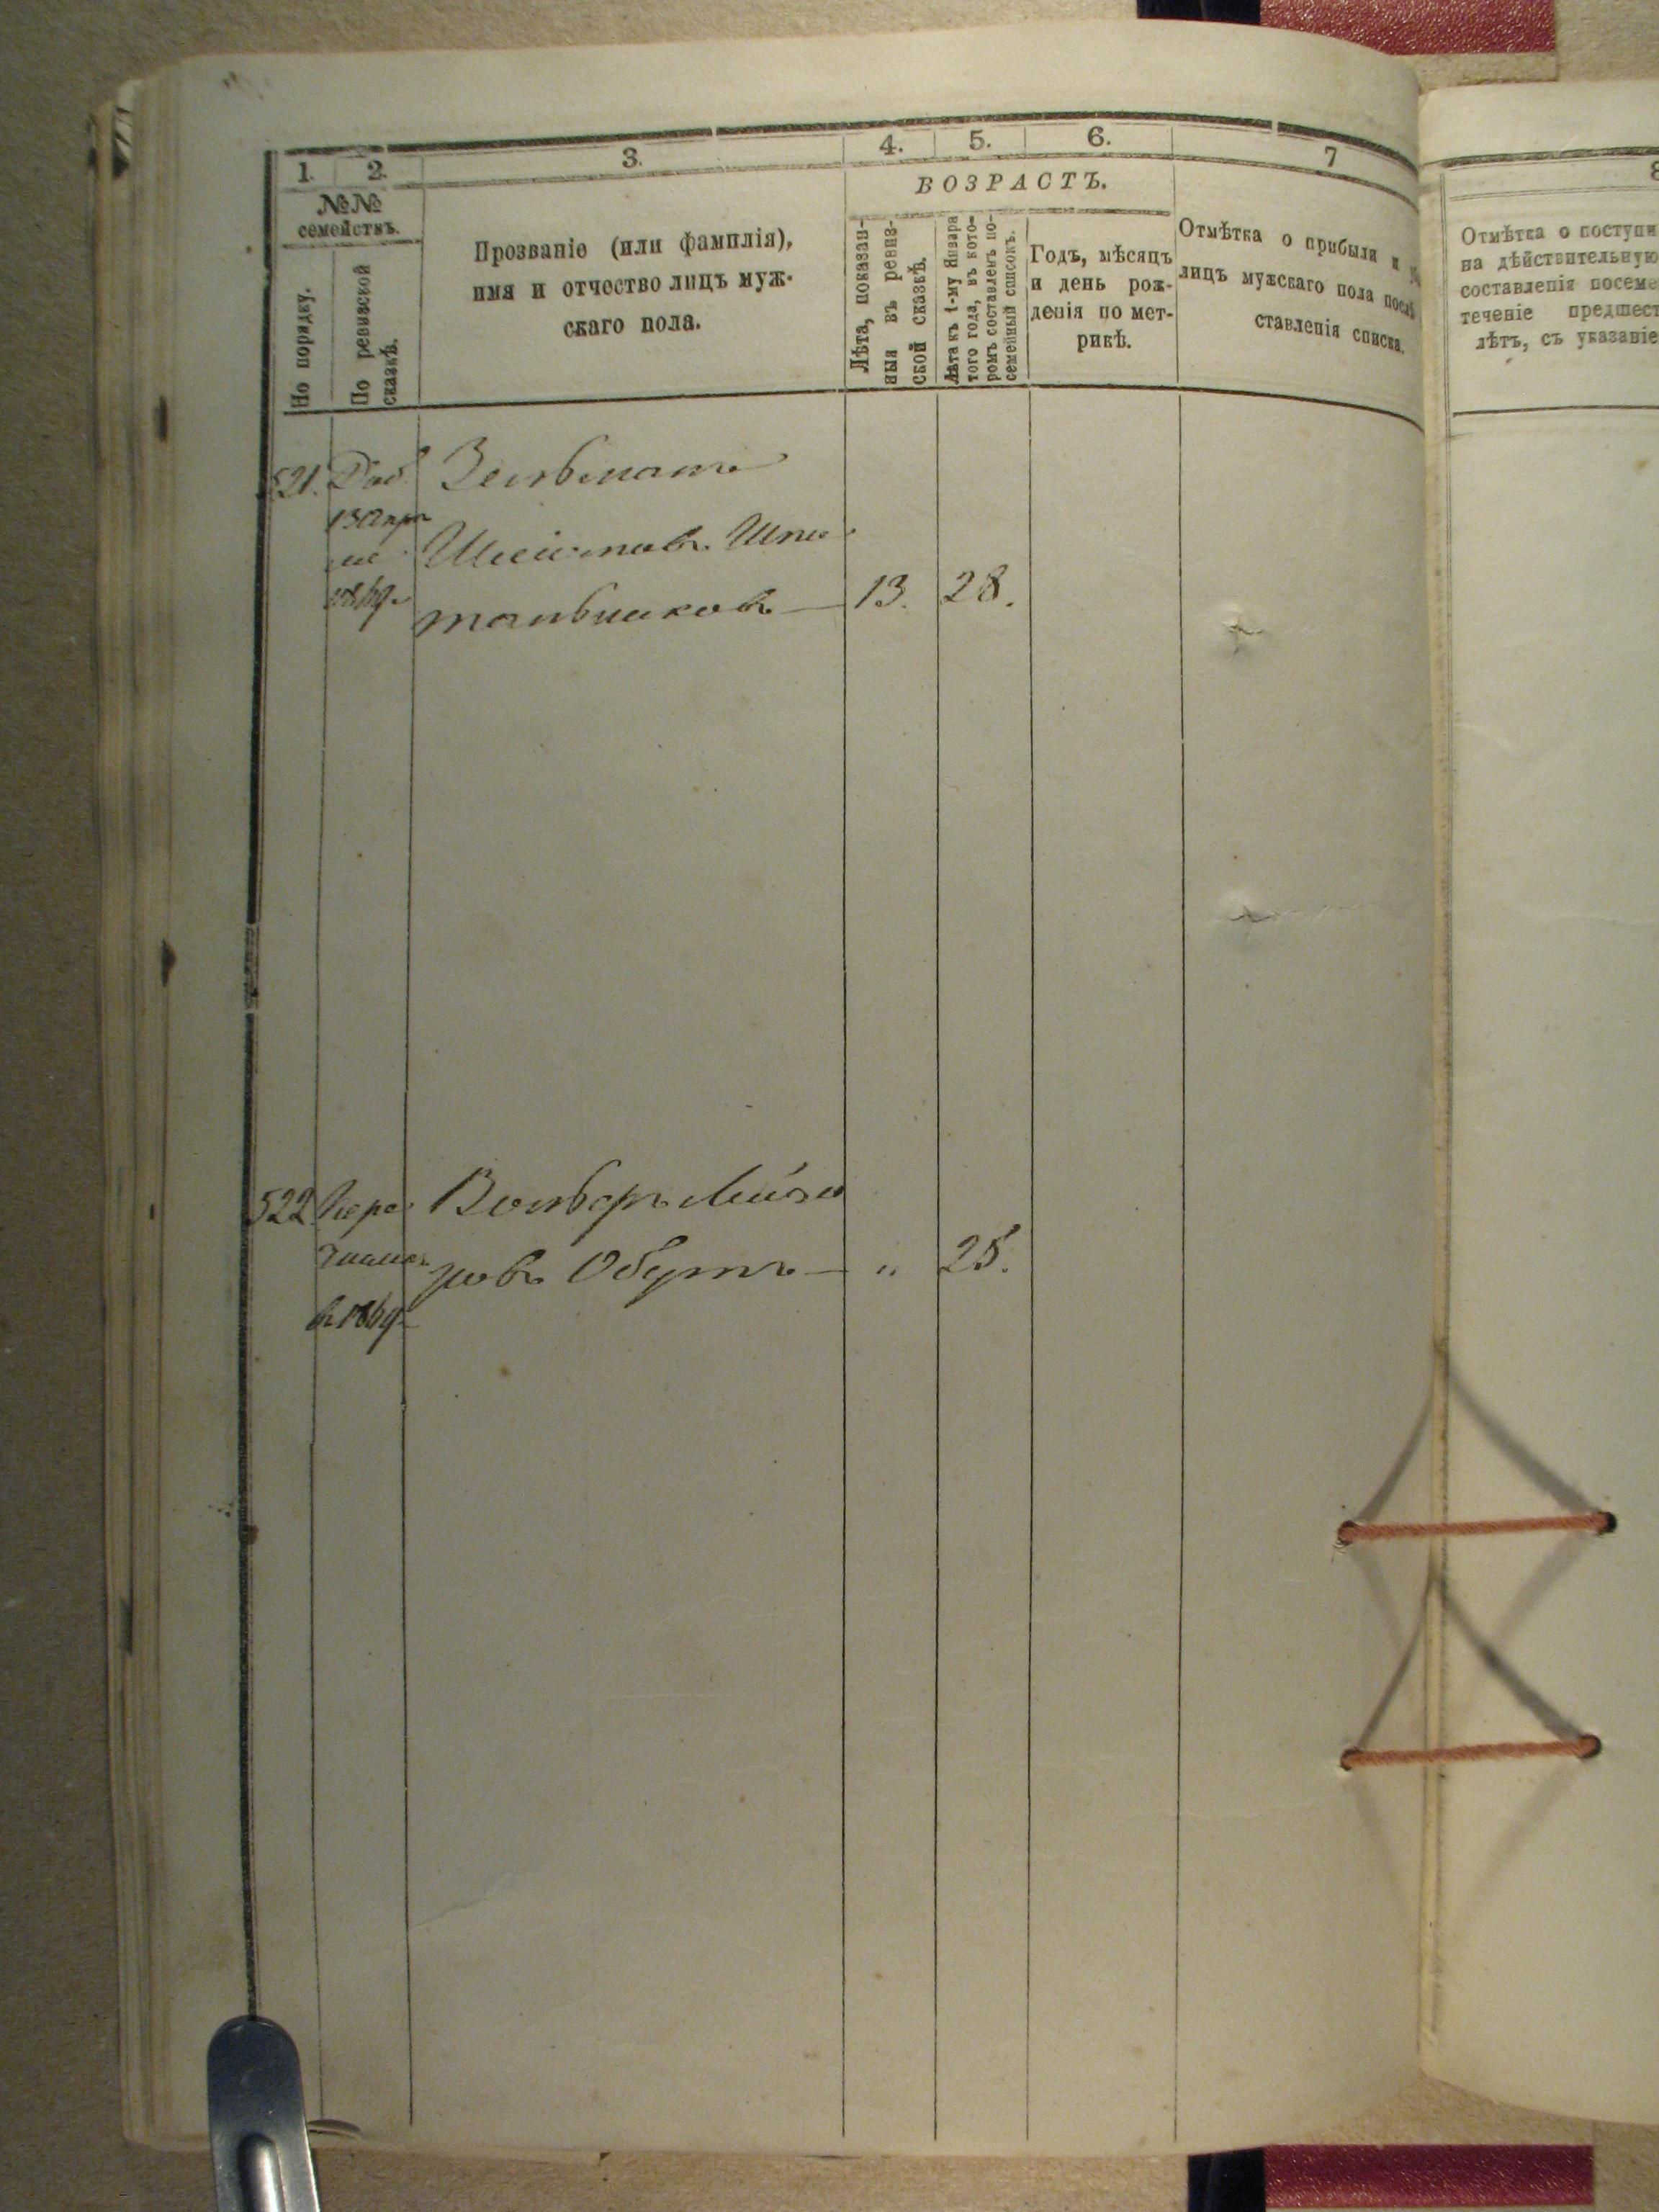 1. 2. 3. 4. 5. 6. 7
№№ семействъ.
По порядку.
По ревизской сказкѣ.
Прозваніе (или фамилія),
имя и отчество лицъ муж-
скаго пола.
ВОЗРАСТЪ.
Лѣта, показан-
ныя въ ревиз-
ской сказкѣ.
Лѣта къ 1-му Января
того года, въ кото-
ромъ составленъ по-
семейный списокъ.
Годъ, мѣсяцъ
и день рож-
денія по мет-
рикѣ.
Отмѣтка о прибыли и
лицъ мужскаго пола послѣ
ставленія списка.
8
Отмѣтка о поступи
на дѣйствительную
составленія посеме
теченіе предшест
лѣтъ, съ указаніе
521. Доб. Зельманъ
13 Апрѣ
ля
1869
13. 28.
522 Пере
числ
въ 1869
Вольфъ Лейзе
ровъ Обутъ — „ 25.